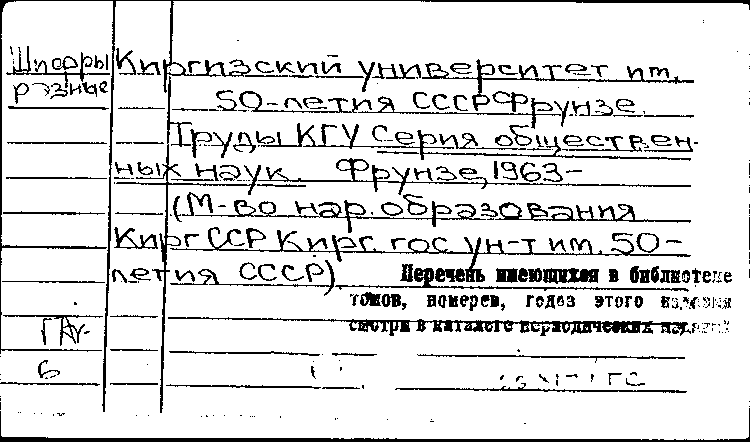 Шифры Киргизский университет им.
разные 50-летия СССР Фрунзе.
Труды КГУ Серия обществен-
ных наук. Фрунзе, 1963-
(М-во нар. образования
Кирг ССР Кирг. гос ун-т им. 50-
летия СССР).
Перечень имеющихся в библиотеке
томов, номеров, годов этого издания
смотри в каталоге периодических изданий
6